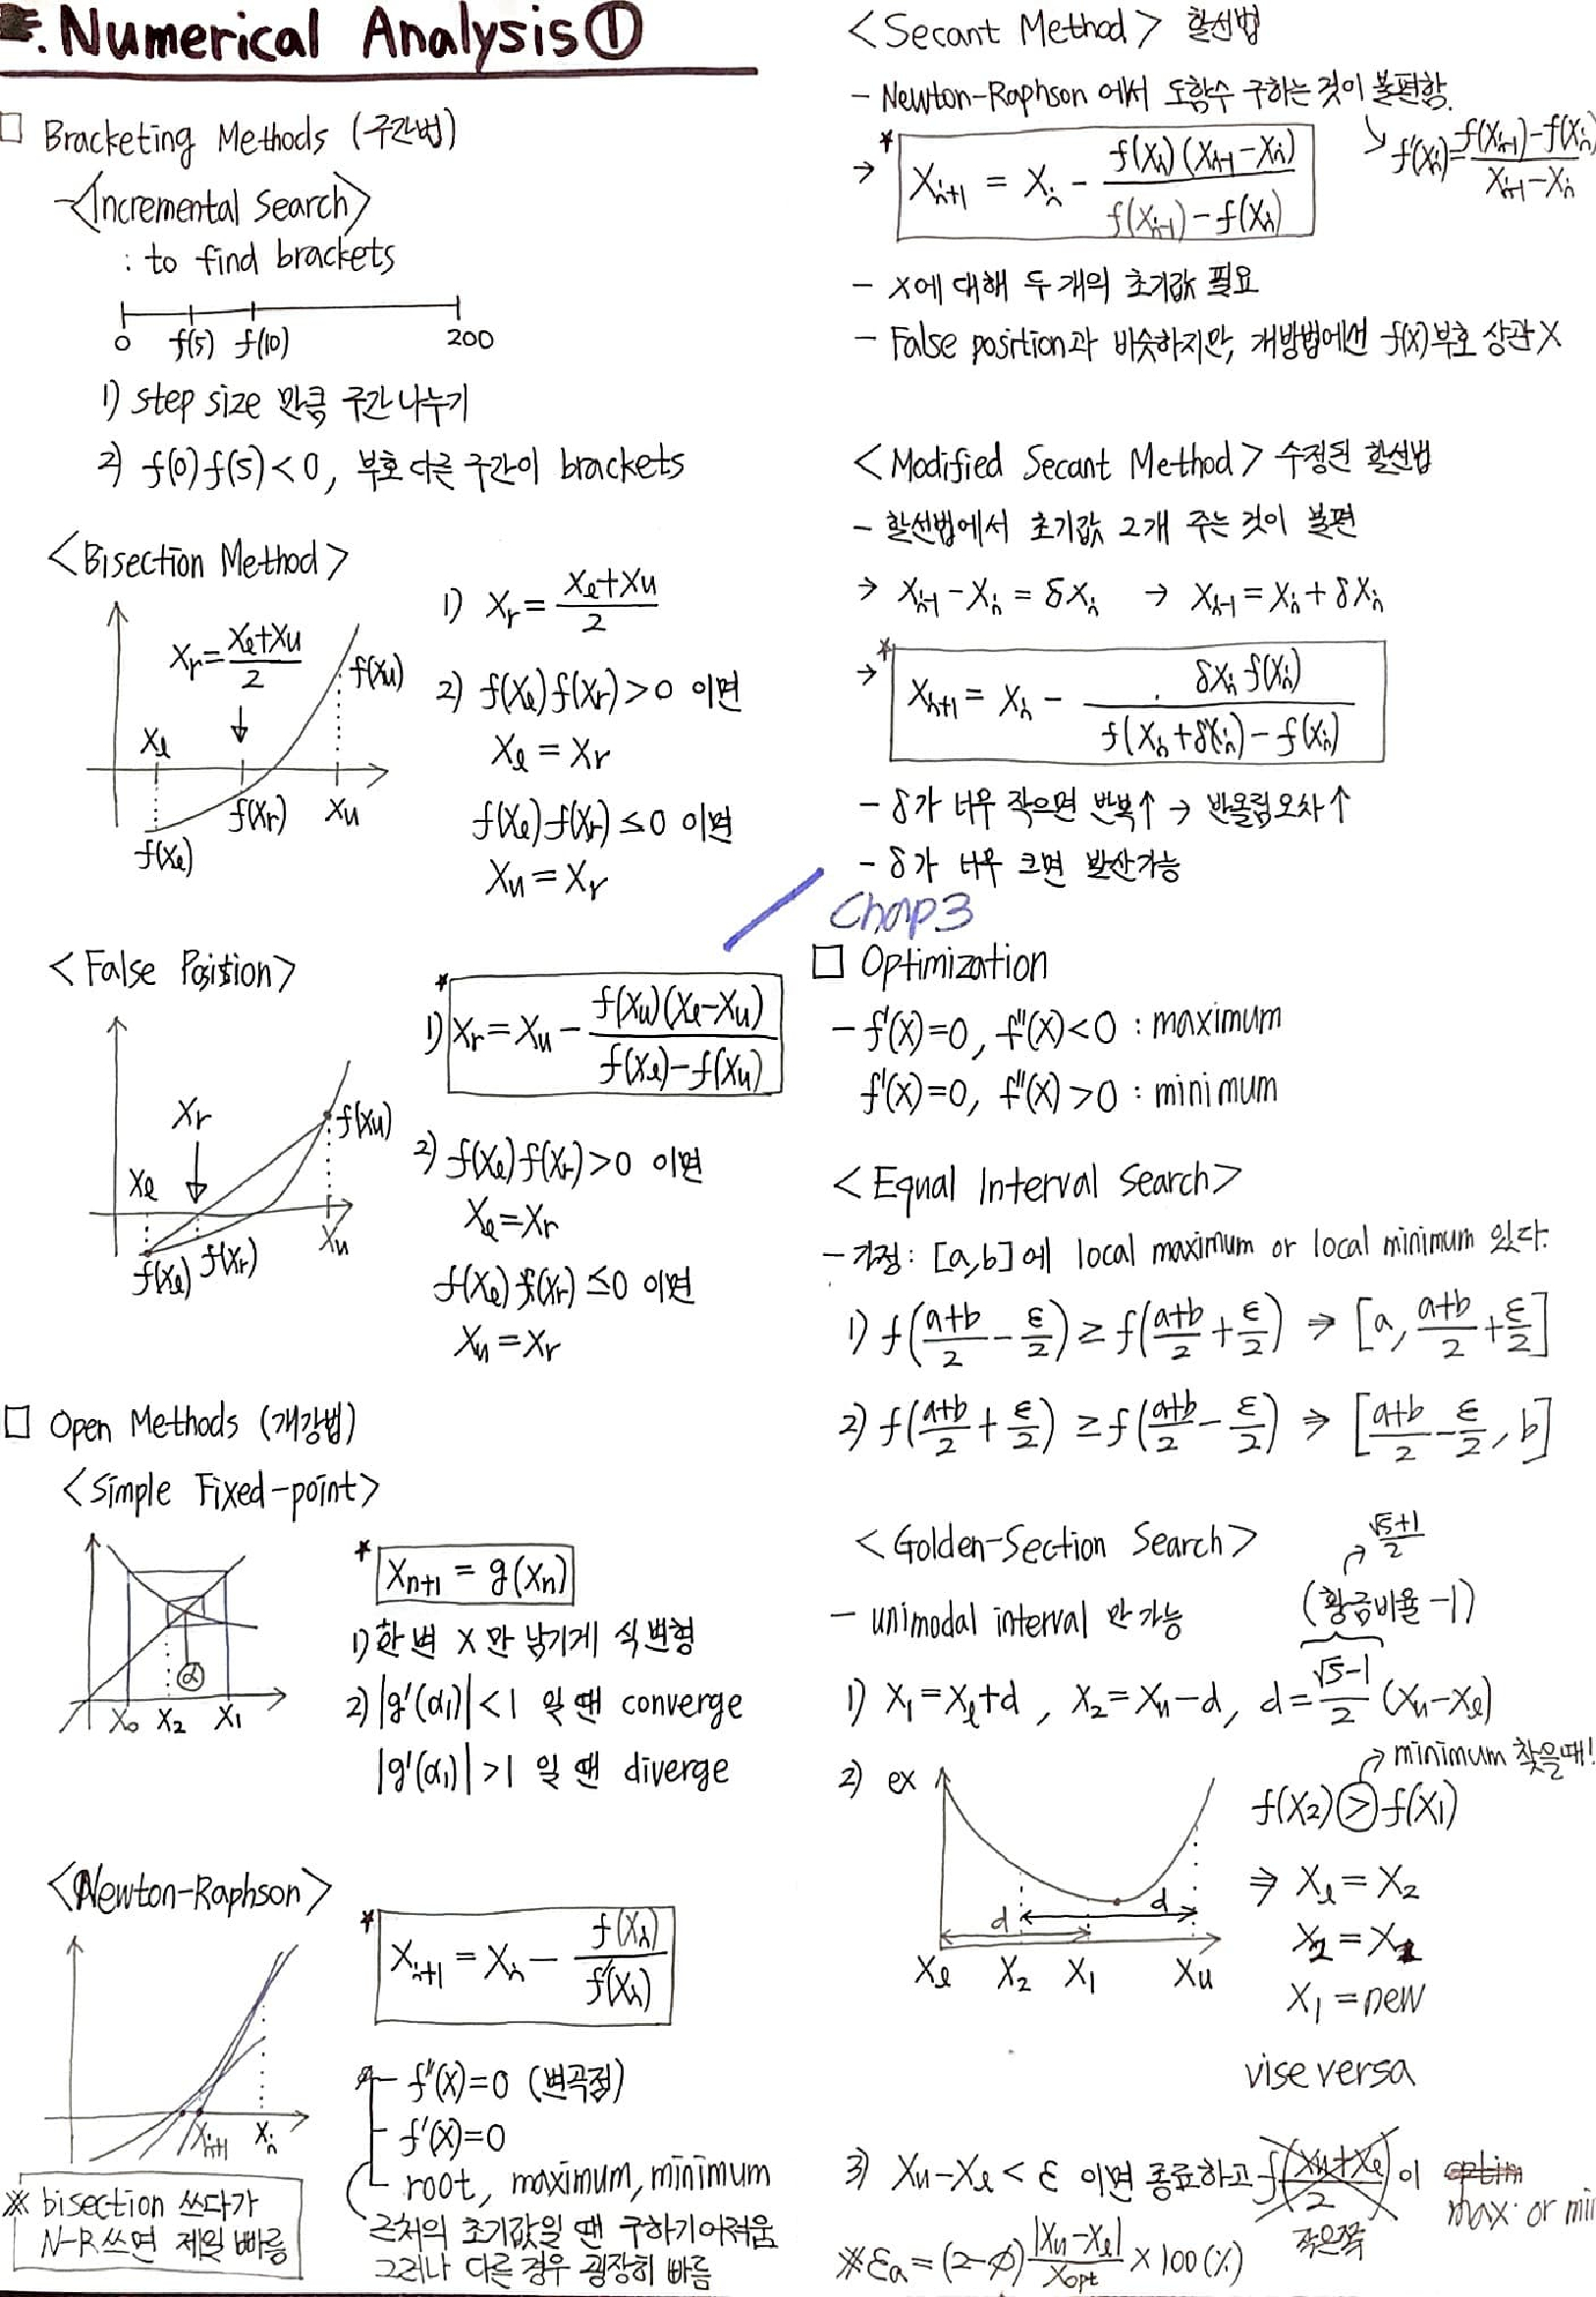 Numerical Analysis①
□ Bracketing Methods (구간법)
-<Incremental Search>
: to find brackets
0 f(5) f(10) 200
1) step size 만큼 구간 나누기
2) f(0)f(5)<0, 부호 다른 구간이 brackets
<Bisection Method>
Xr=(Xl+Xu)/2
Xl
f(Xu)
f(Xr)
Xu
f(Xl)
1) Xr=(Xl+Xu)/2
2) f(Xl)f(Xr)>0 이면
Xl=Xr
f(Xl)f(Xr)≤0 이면
Xu=Xr
<False Position>
Xr
f(Xu)
Xl
Xu
f(Xl) f(Xr)
* 1) Xr=Xu-f(Xu)(Xl-Xu)/(f(Xl)-f(Xu))
2) f(Xl)f(Xr)>0 이면
Xl=Xr
f(Xl)f(Xr)≤0 이면
Xu=Xr
□ Open Methods (개강법)
<Simple Fixed-point>
α
X₀ X₂ X₁
* Xn+1=g(Xn)
1) 한 변 X만 남기게 식 변형
2) |g'(α₁)|<1 일 땐 converge
|g'(α₁)|>1 일 땐 diverge
<Newton-Raphson>
Xi+1 Xi
* Xi+1=Xi-f(Xi)/f'(Xi)
f''(X)=0 (변곡점)
f'(X)=0
root, maximum, minimum
근처의 초기값일 땐 구하기어려움
그러나 다른 경우 굉장히 빠름
※ bisection 쓰다가
N-R쓰면 제일 빠름
<Secant Method> 할선법
- Newton-Raphson 에서 도함수 구하는 것이 불편함.
↘ f'(Xi)=(f(Xi-1)-f(Xi))/(Xi-1-Xi)
→ * Xi+1=Xi-f(Xi)(Xi-1-Xi)/(f(Xi-1)-f(Xi))
- X에 대해 두 개의 초기값 필요
- False position과 비슷하지만, 개방법에선 f(x)부호 상관X
<Modified Secant Method> 수정된 할선법
- 할선법에서 초기값 2개 주는 것이 불편
→ Xi-1-Xi=δXi → Xi-1=Xi+δXi
→ * Xi+1=Xi-δXi f(Xi)/(f(Xi+δXi)-f(Xi))
- δ가 너무 작으면 반복↑ → 반올림오차↑
- δ가 너무 크면 발산가능
Chap3
□ Optimization
- f'(X)=0, f''(X)<0 : maximum
f'(X)=0, f''(X)>0 : minimum
<Equal Interval Search>
- 가정: [a,b]에 local maximum or local minimum 있다.
1) f((a+b)/2-ε/2)≥f((a+b)/2+ε/2) ⇒ [a, (a+b)/2+ε/2]
2) f((a+b)/2+ε/2)≥f((a+b)/2-ε/2) ⇒ [(a+b)/2-ε/2, b]
<Golden-Section Search>
(√5+1)/2
- unimodal interval 만 가능 (황금비율-1)
1) X₁=Xl+d, X₂=Xu-d, d=(√5-1)/2 (Xu-Xl)
2) ex
d d
Xl X₂ X₁ Xu
→ minimum 찾을때!
f(X₂)>f(X₁)
⇒ Xl=X₂
X₂=X₁
X₁=new
vise versa
3) Xu-Xl<ε 이면 종료하고 f((Xu+Xl)/2)이 optim
작은쪽
max or min
※ εa=(2-φ)|Xu-Xl|/Xopt×100(%)